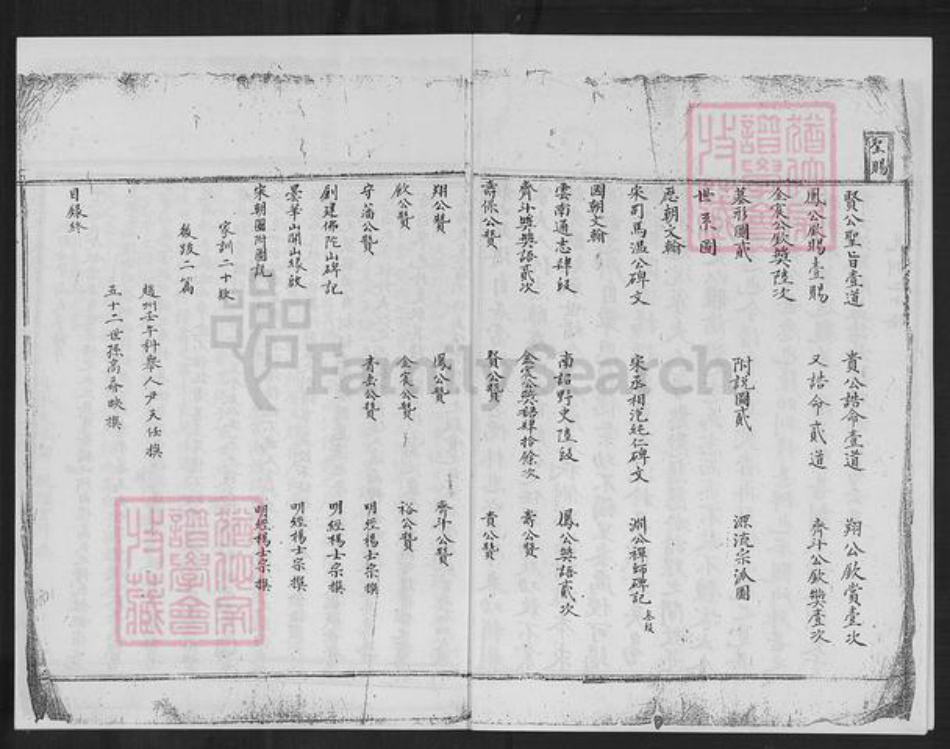 聖賜
賢公聖旨壹道 貴公誥命壹道 翔公欽賞壹次
鳳公欽賜壹賜 又誥命貳道 齊斗公欽獎壹次
金宸公欽獎陸次
墓形圖貳 附説圖貳 源流宗派圖
世系圖
歷朝文翰
宋司馬溫公碑文 宋丞相范純仁碑文 淵公禪師碑記
國朝文翰
雲南通志肆段 南詔野史陸段 鳳公獎語貳次
齊斗獎語貳次 金宸公獎語肆拾餘次 壽公贊
壽保公贊 賢公贊 貴公贊
翔公贊 鳳公贊 齊斗公贊
欽公贊 金宸公贊 裕公贊
守藩公贊 青岳公贊 明經楊士宗撰
創建佛陀山碑記 明經楊士宗撰
墨華山開山緣啟 明經楊士宗撰
宋朝圖附圖説 明經楊士宗撰
家訓二十欵
後跋二篇
趙州壬午科舉人尹天任撰
五十二世孫高奣映撰
目錄終
FamilySearch